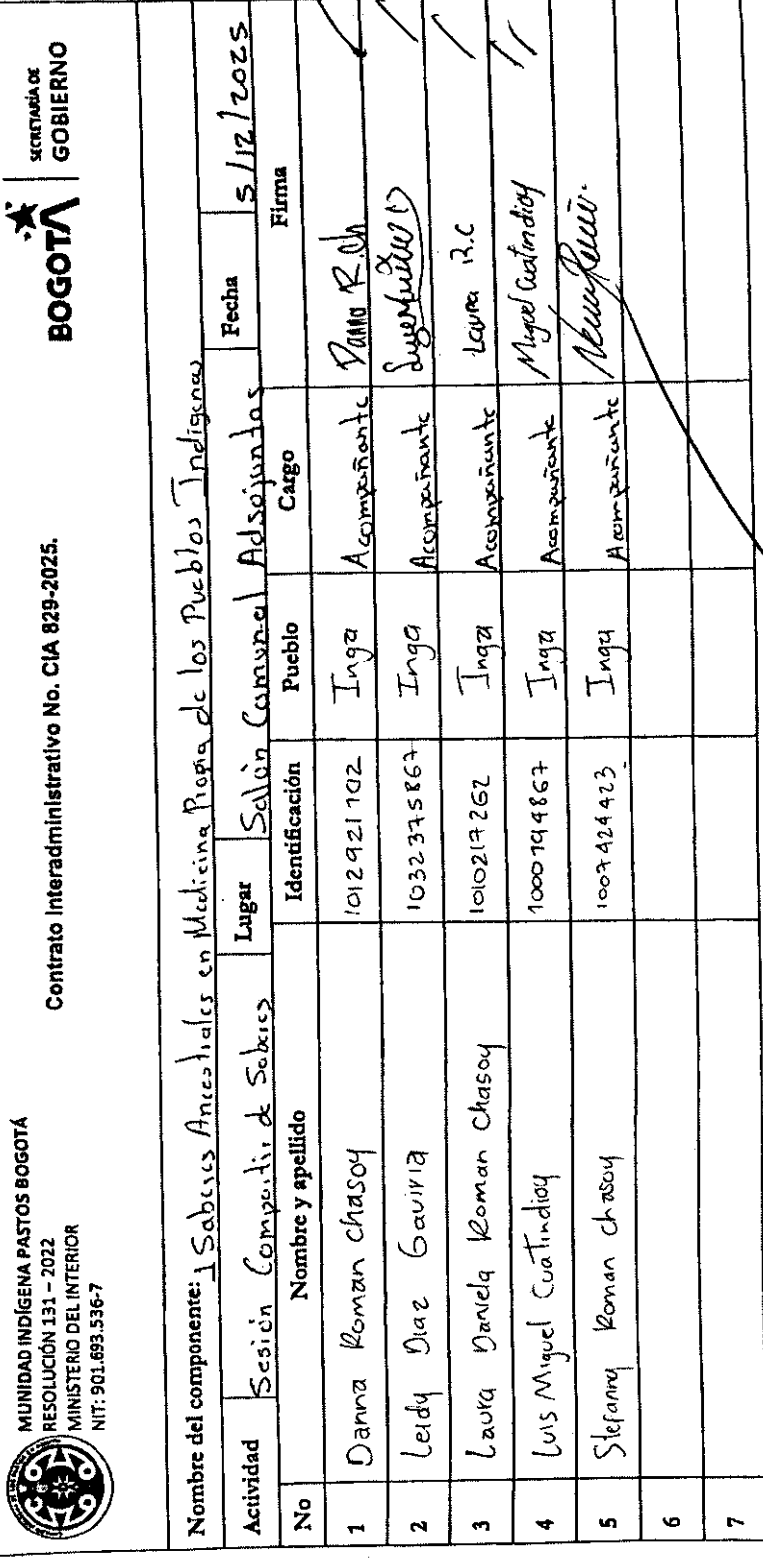 MUNIDAD INDÍGENA PASTOS BOGOTÁ
RESOLUCIÓN 131 – 2022
MINISTERIO DEL INTERIOR
NIT: 901.693.536-7
Contrato Interadministrativo No. CIA 829-2025.
BOGOTÁ
SECRETARÍA DE
GOBIERNO
Nombre del componente: 1 Saberes Ancestrales en Medicina Propia de los Pueblos Indigenas
Actividad Sesión Compartir de Saberes Lugar Salón Comunal Adsojuntas Fecha 5/12/2025
No Nombre y apellido Identificación Pueblo Cargo Firma
1 Danna Roman chasoy 1012921702 Inga Acompañante Danna R.Ch
2 Leidy Diaz Gaviria 1032375867 Inga Acompañante
3 Laura Daniela Roman Chasoy 1010217262 Inga Acompañante Laura R.C
4 Luis Miguel Cuatindioy 1000794867 Inga Acompañante Miguel Cuatindioy
5 Stefanny Roman chasoy 1007424423 Inga Acompañante
6
7